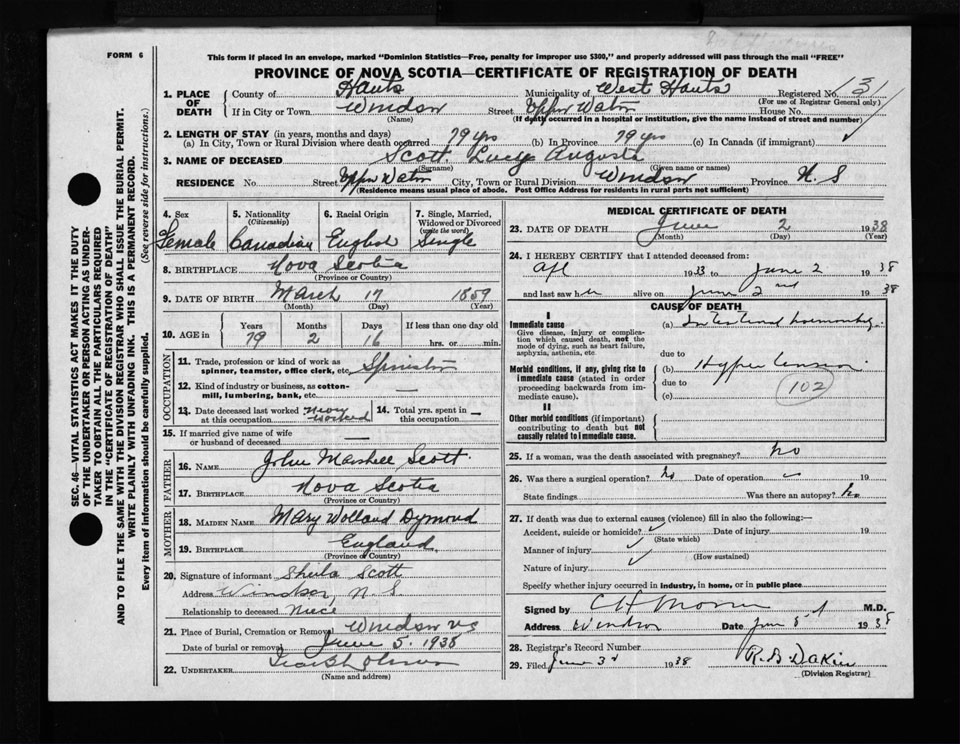 FORM 6
This form if placed in an envelope, marked "Dominion Statistics—Free, penalty for improper use $300," and properly addressed will pass through the mail "FREE"
PROVINCE OF NOVA SCOTIA—CERTIFICATE OF REGISTRATION OF DEATH
1. PLACE OF DEATH
County of Hants Municipality of West Hants Registered No. 131
(For use of Registrar General only)
If in City or Town Windsor Street Upper Water House No.
(Name) (If death occurred in a hospital or institution, give the name instead of street and number)
2. LENGTH OF STAY (in years, months and days)
(a) In City, Town or Rural Division where death occurred 79 yrs (b) In Province 79 yrs (c) In Canada (if immigrant)
3. NAME OF DECEASED Scott Lucy Augusta
(Surname) (Given name or names)
RESIDENCE No. Street Upper Water City, Town or Rural Division Windsor Province N. S
(Residence means usual place of abode. Post Office Address for residents in rural parts not sufficient)
SEC. 46—VITAL STATISTICS ACT MAKES IT THE DUTY
OF THE UNDERTAKER OR PERSON ACTING AS UNDER-
TAKER TO OBTAIN ALL THE PARTICULARS REQUIRED
IN THE "CERTIFICATE OF REGISTRATION OF DEATH"
AND TO FILE THE SAME WITH THE DIVISION REGISTRAR WHO SHALL ISSUE THE BURIAL PERMIT.
WRITE PLAINLY WITH UNFADING INK. THIS IS A PERMANENT RECORD.
Every item of information should be carefully supplied. (See reverse side for instructions.)
4. Sex 5. Nationality (Citizenship) 6. Racial Origin 7. Single, Married, Widowed or Divorced (write the word)
Female Canadian English Single
8. BIRTHPLACE Nova Scotia
(Province or Country)
9. DATE OF BIRTH March 17 1859
(Month) (Day) (Year)
10. AGE in Years Months Days If less than one day old
79 2 16 hrs. or min.
OCCUPATION
11. Trade, profession or kind of work as
spinner, teamster, office clerk, etc. Spinster
12. Kind of industry or business, as cotton-
mill, lumbering, bank, etc. —
13. Date deceased last worked at this occupation never worked 14. Total yrs. spent in this occupation —
15. If married give name of wife
or husband of deceased —
FATHER
16. NAME John Marshall Scott
17. BIRTHPLACE Nova Scotia
(Province or Country)
MOTHER
18. MAIDEN NAME Mary Wolland Dymond
19. BIRTHPLACE England
(Province or Country)
20. Signature of informant Sheila Scott
Address Windsor, N. S.
Relationship to deceased Niece
21. Place of Burial, Cremation or Removal Windsor NS
Date of burial or removal June 5. 1938
22. UNDERTAKER
(Name and address)
MEDICAL CERTIFICATE OF DEATH
23. DATE OF DEATH June 2 1938
(Month) (Day) (Year)
24. I HEREBY CERTIFY that I attended deceased from:
Apl 1933 to June 2 1938
and last saw her alive on June 2nd 1938
CAUSE OF DEATH
I
Immediate cause
Give disease, injury or complica-
tion which caused death, not the
mode of dying, such as heart failure,
asphyxia, asthenia, etc.
(a) Intestinal haemorrhage
due to
Morbid conditions, if any, giving rise to
immediate cause (stated in order
proceeding backwards from im-
mediate cause).
(b) Hypertension
due to
(c) 102
II
Other morbid conditions (if important)
contributing to death but not
causally related to immediate cause.
25. If a woman, was the death associated with pregnancy? no
26. Was there a surgical operation? no Date of operation 19
State findings Was there an autopsy? no
27. If death was due to external causes (violence) fill in also the following:—
Accident, suicide or homicide? Date of injury 19
(State which)
Manner of injury
(How sustained)
Nature of injury
Specify whether injury occurred in industry, in home, or in public place
Signed by M.D.
Address Windsor Date June 1938
28. Registrar's Record Number
29. Filed June 3d 1938 R. B Dakin
(Division Registrar)